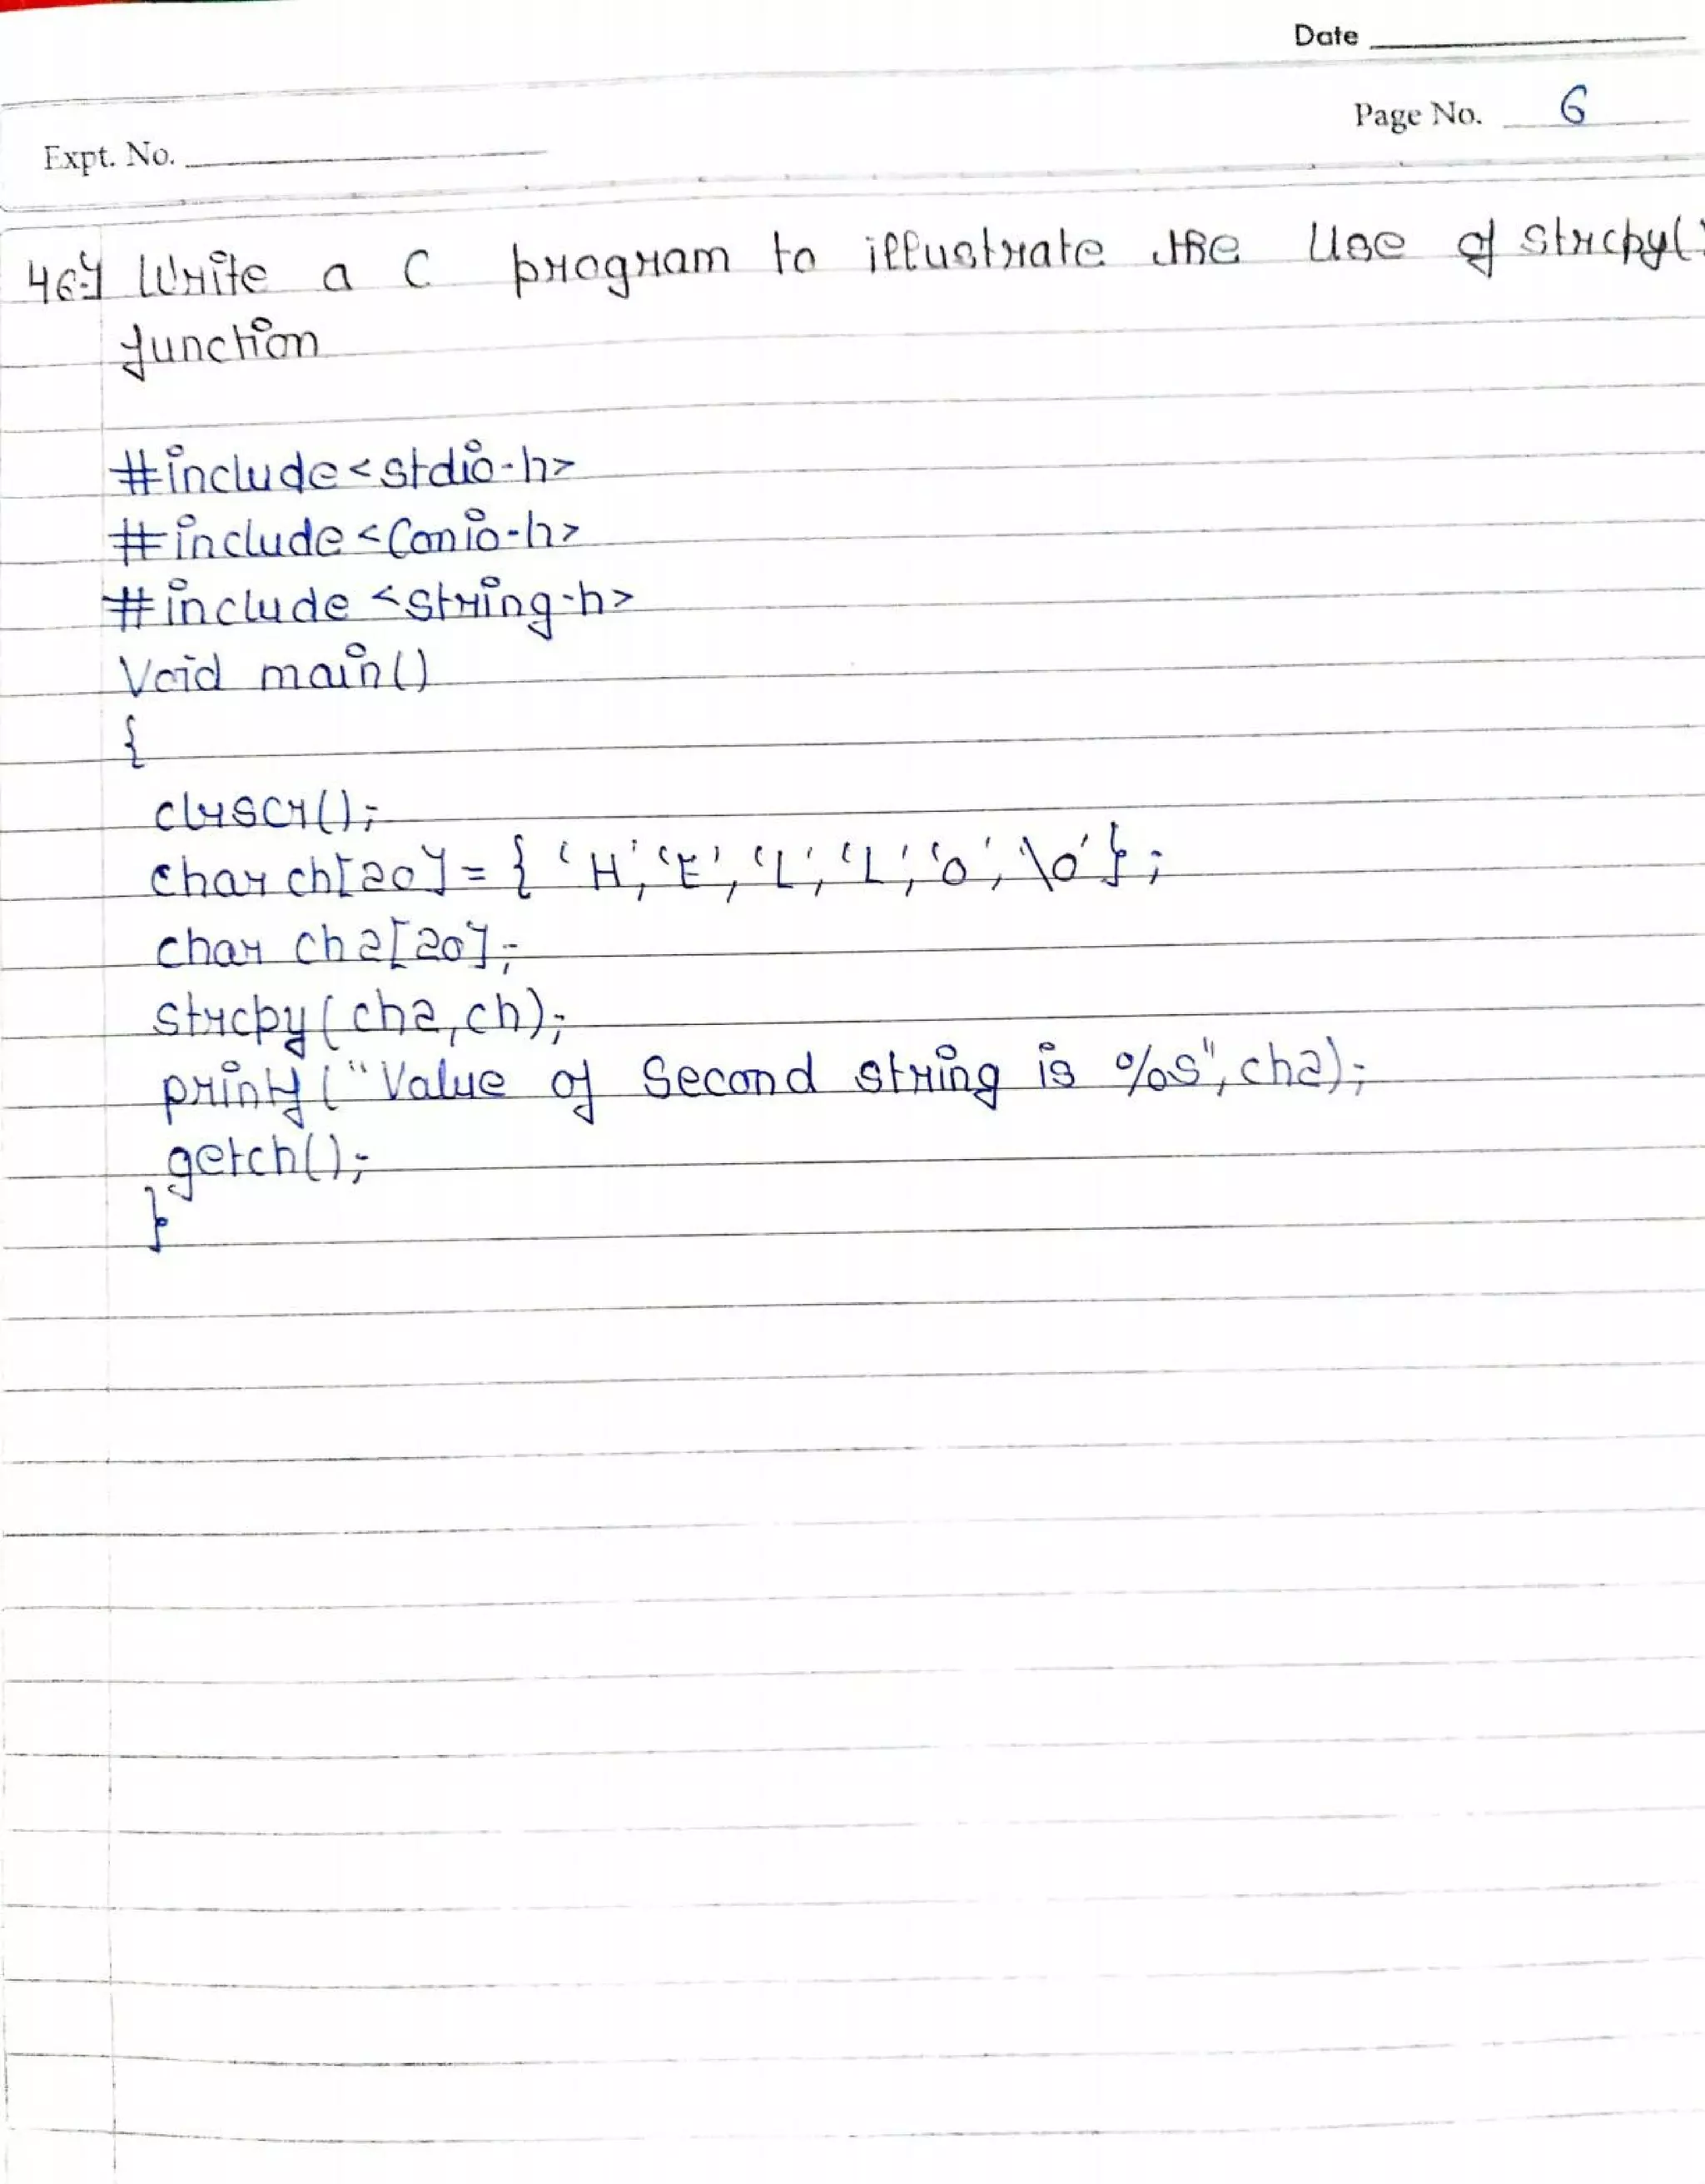 Date
Page No. 6
Expt. No.
46.) Write a C program to illustrate the Use of strcpy()
function
#include<stdio.h>
#include<Conio.h>
#include <string.h>
Void main()
{
clrscr();
char ch[20] = { 'H', 'E', 'L', 'L', 'O', '\0' };
char ch2[20];
strcpy(ch2,ch);
printf("Value of Second string is %s", ch2);
getch();
}